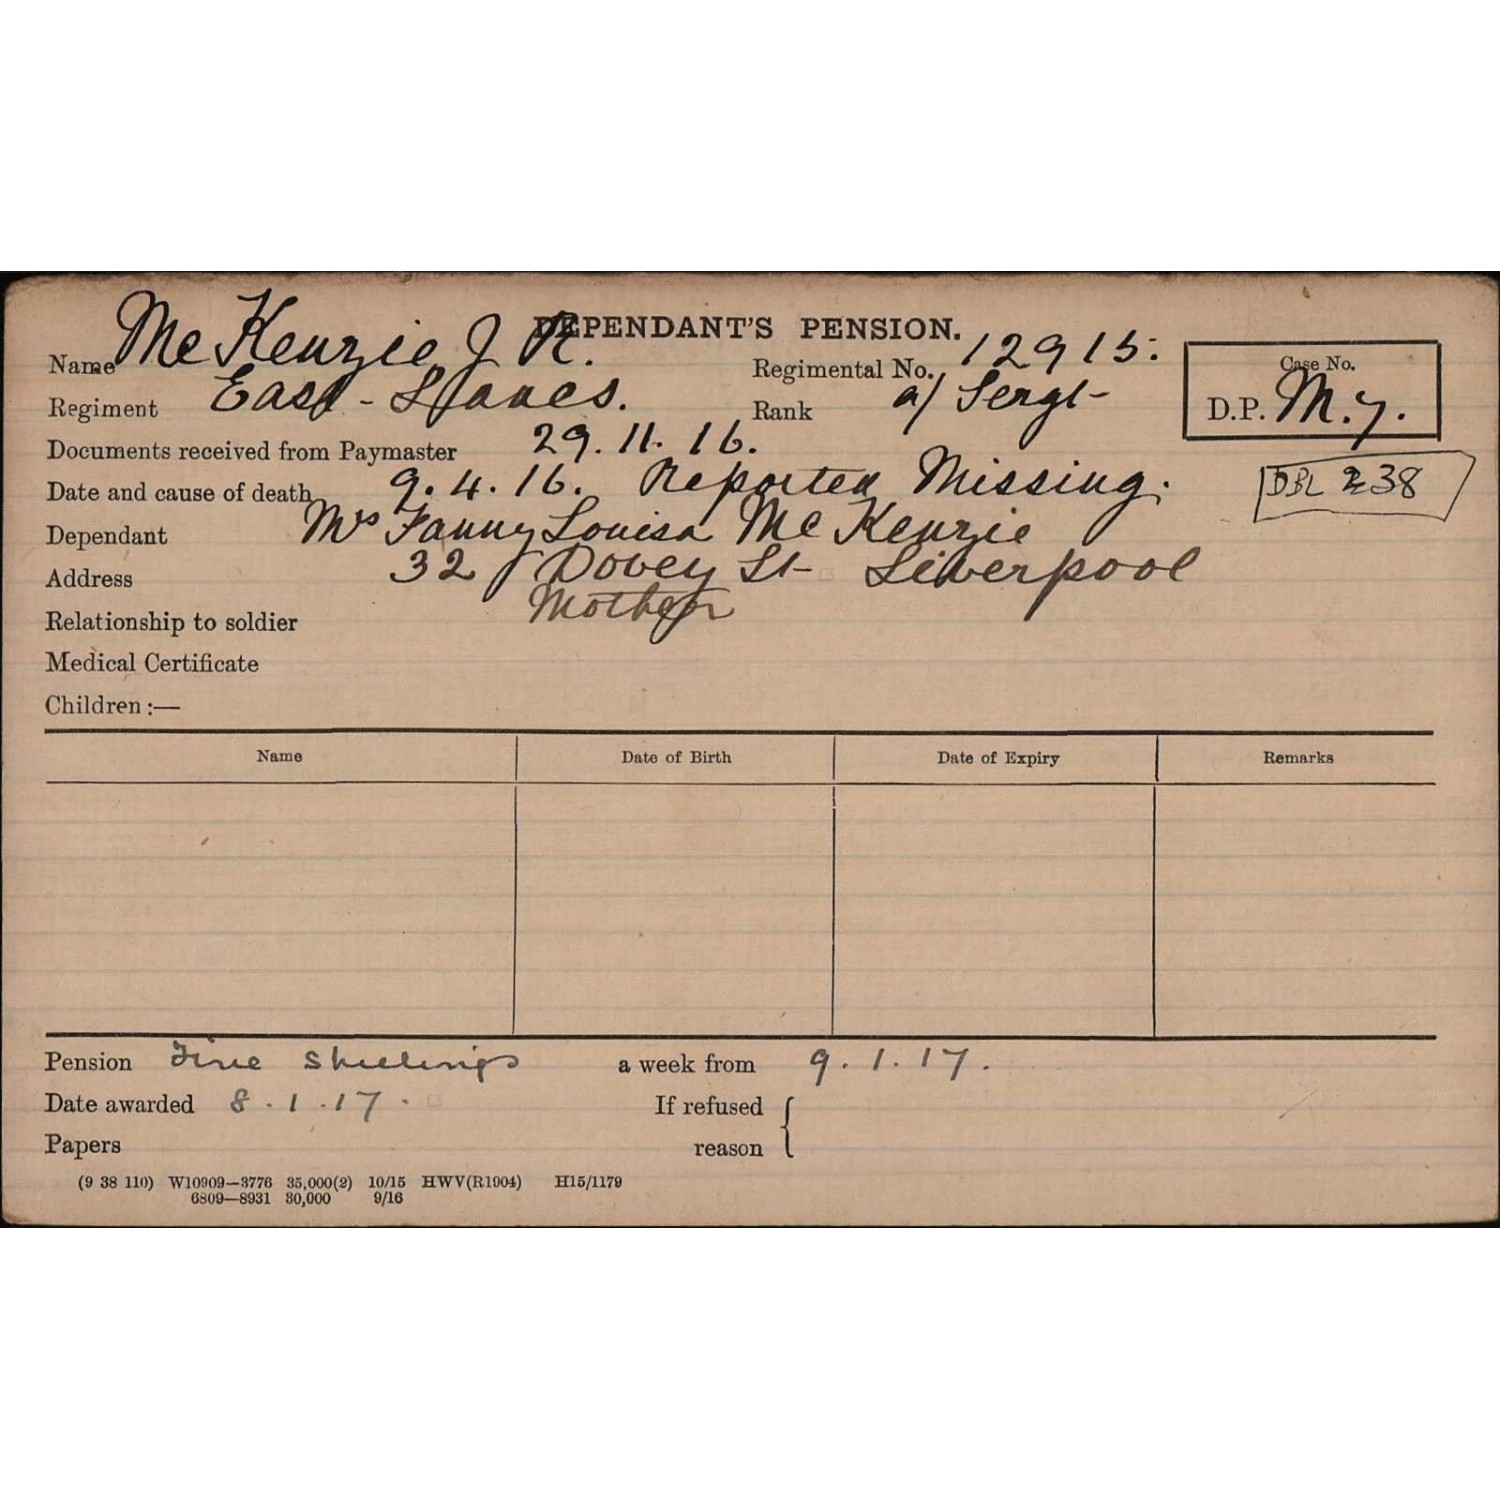 DEPENDANT'S PENSION.
Name McKenzie J R. Regimental No. 12915.
Case No.
Regiment East Lancs. Rank a/ Sergt D.P. M.7.
Documents received from Paymaster 29.11.16.
Date and cause of death 9.4.16. Reported Missing. DBL 238
Dependant Mrs Fanny Louisa McKenzie
Address 32 Dovey St Liverpool
Relationship to soldier Mother
Medical Certificate
Children :—
Name Date of Birth Date of Expiry Remarks
Pension Five Shillings a week from 9.1.17.
Date awarded 8.1.17. If refused
Papers reason
(9 38 110) W10909—3776 35,000(2) 10/15 HWV(R1004) H15/1179
6809—8931 30,000 9/16